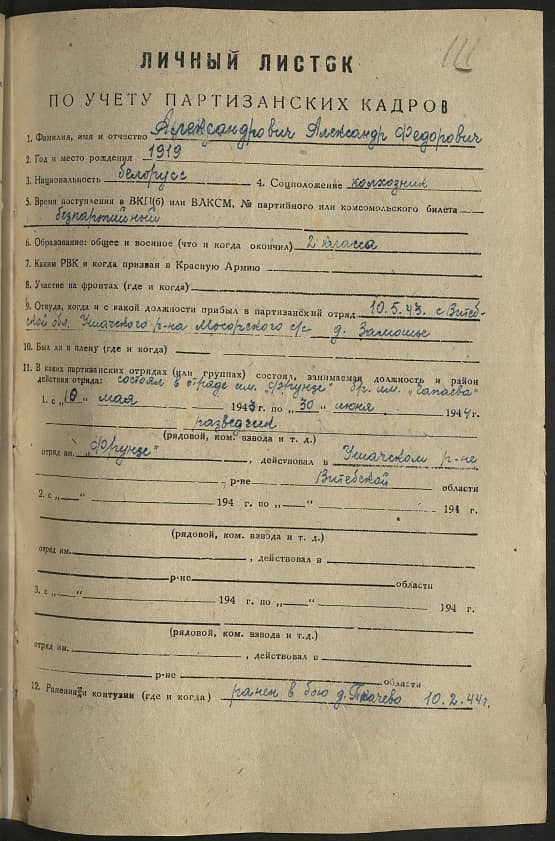 111
ЛИЧНЫЙ ЛИСТОК
ПО УЧЕТУ ПАРТИЗАНСКИХ КАДРОВ
1. Фамилия, имя и отчество Александрович Александр Федорович
2. Год и место рождения 1919
3. Национальность белорусс 4. Соцположение колхозник
5. Время поступления в ВКП(б) или ВЛКСМ, № партийного или комсомольского билета
безпартийный
6. Образование: общее и военное (что и когда окончил) 2 класса
7. Каким РВК и когда призван в Красную Армию
8. Участие на фронтах (где и когда)
9. Откуда, когда и с какой должности прибыл в партизанский отряд 10.5.43. с Витеб-
ской обл. Ушачского р-на Мосорского с/с д. Замошье
10. Был ли в плену (где и когда)
11. В каких партизанских отрядах (или группах) состоял, занимаемая должность и район
действия отряда: состоял в отряде им. "Фрунзе" бр. им. "Чапаева"
1. с "10" мая 1943 г. по "30" июня 1944 г.
разведчик
(рядовой, ком. взвода и т. д.)
отряд им. "Фрунзе", действовал в Ушачском р-не
р-не Витебской области
2. с „ “ 194 г. по „ “ 194 г.
(рядовой, ком. взвода и т. д.)
отряд им. , действовал в
р-не области
3. с „ “ 194 г. по „ “ 194 г.
(рядовой, ком. взвода и т.д.)
отряд им. , действовал в
р-не области
12. Ранения и контузии (где и когда) ранен в бою д. 10.2.44 г.